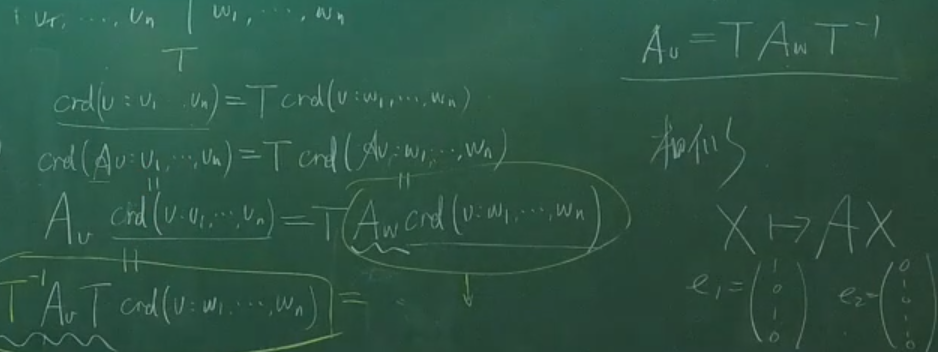 v₁, ⋯, vₙ | w₁, ⋯, wₙ
T
crd(v : v₁ ⋯ vₙ) = T crd(v : w₁, ⋯, wₙ)
crd(Av : v₁, ⋯, vₙ) = T crd(Av : w₁, ⋯, wₙ)
||
||
Aᵥ crd(v : v₁, ⋯, vₙ) = T A_w crd(v : w₁, ⋯, wₙ)
||
T⁻¹ Aᵥ T crd(v : w₁, ⋯, wₙ) =
↓
Aᵥ = T A_w T⁻¹
相似
X ↦ AX
e₁ = (1 0 ⋮ 0) e₂ = (0 1 0 ⋮ 0)